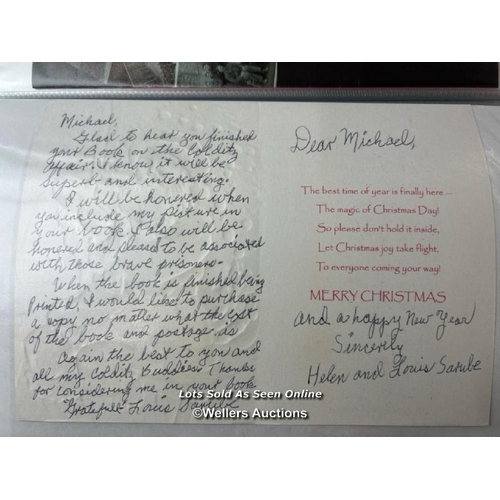 Michael,
Glad to hear you finished
your Book on the Colditz
Affair. I know it will be
superb and interesting.
I will be honored when
you include my picture in
your book. I also will be
honored and pleased to be associated
with those brave prisoners.
When the book is finished being
Printed, I would like to purchase
a copy no matter what the cost
of the book and postage is
Again the best to you and
all my Colditz Buddies. Thanks
for considering me in your book
Gratefull Louis Sarube
Dear Michael,
The best time of year is finally here --
The magic of Christmas Day!
So please don't hold it inside,
Let Christmas joy take flight,
To everyone coming your way!
MERRY CHRISTMAS
and a happy New Year
Sincerely
Helen and Louis Sarube
Lots Sold As Seen Online
©Wellers Auctions